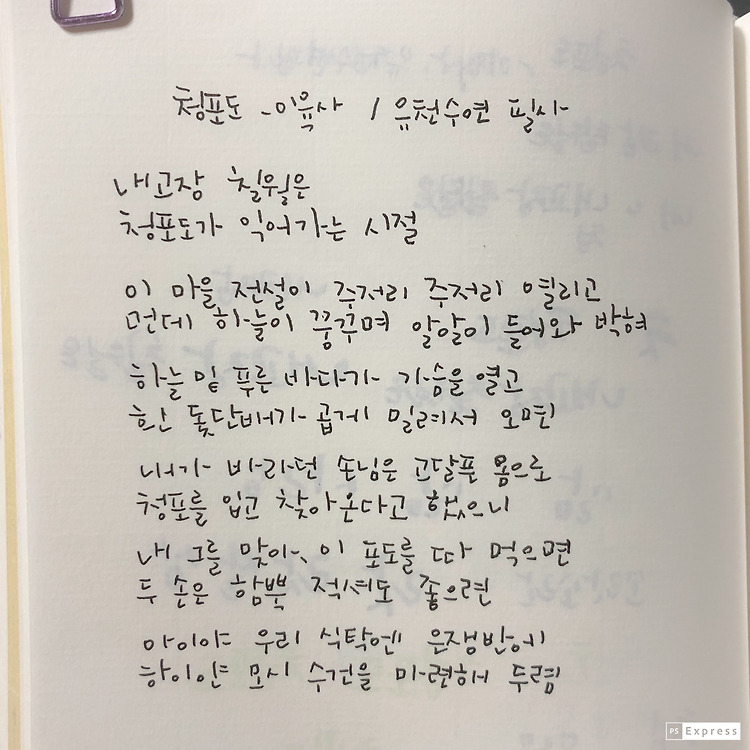 청포도 - 이육사 / 유천수연 필사
내고장 칠월은
청포도가 익어가는 시절
이 마을 전설이 주저리 주저리 열리고
먼데 하늘이 꿈꾸며 알알이 들어와 박혀
하늘 밑 푸른 바다가 가슴을 열고
흰 돛단배가 곱게 밀려서 오면
내가 바라던 손님은 고달픈 몸으로
청포를 입고 찾아온다고 했으니
내 그를 맞아, 이 포도를 따 먹으면
두 손은 함뿍 적셔도 좋으련
아이야 우리 식탁엔 은쟁반에
하이얀 모시 수건을 마련해 두렴
PS Express